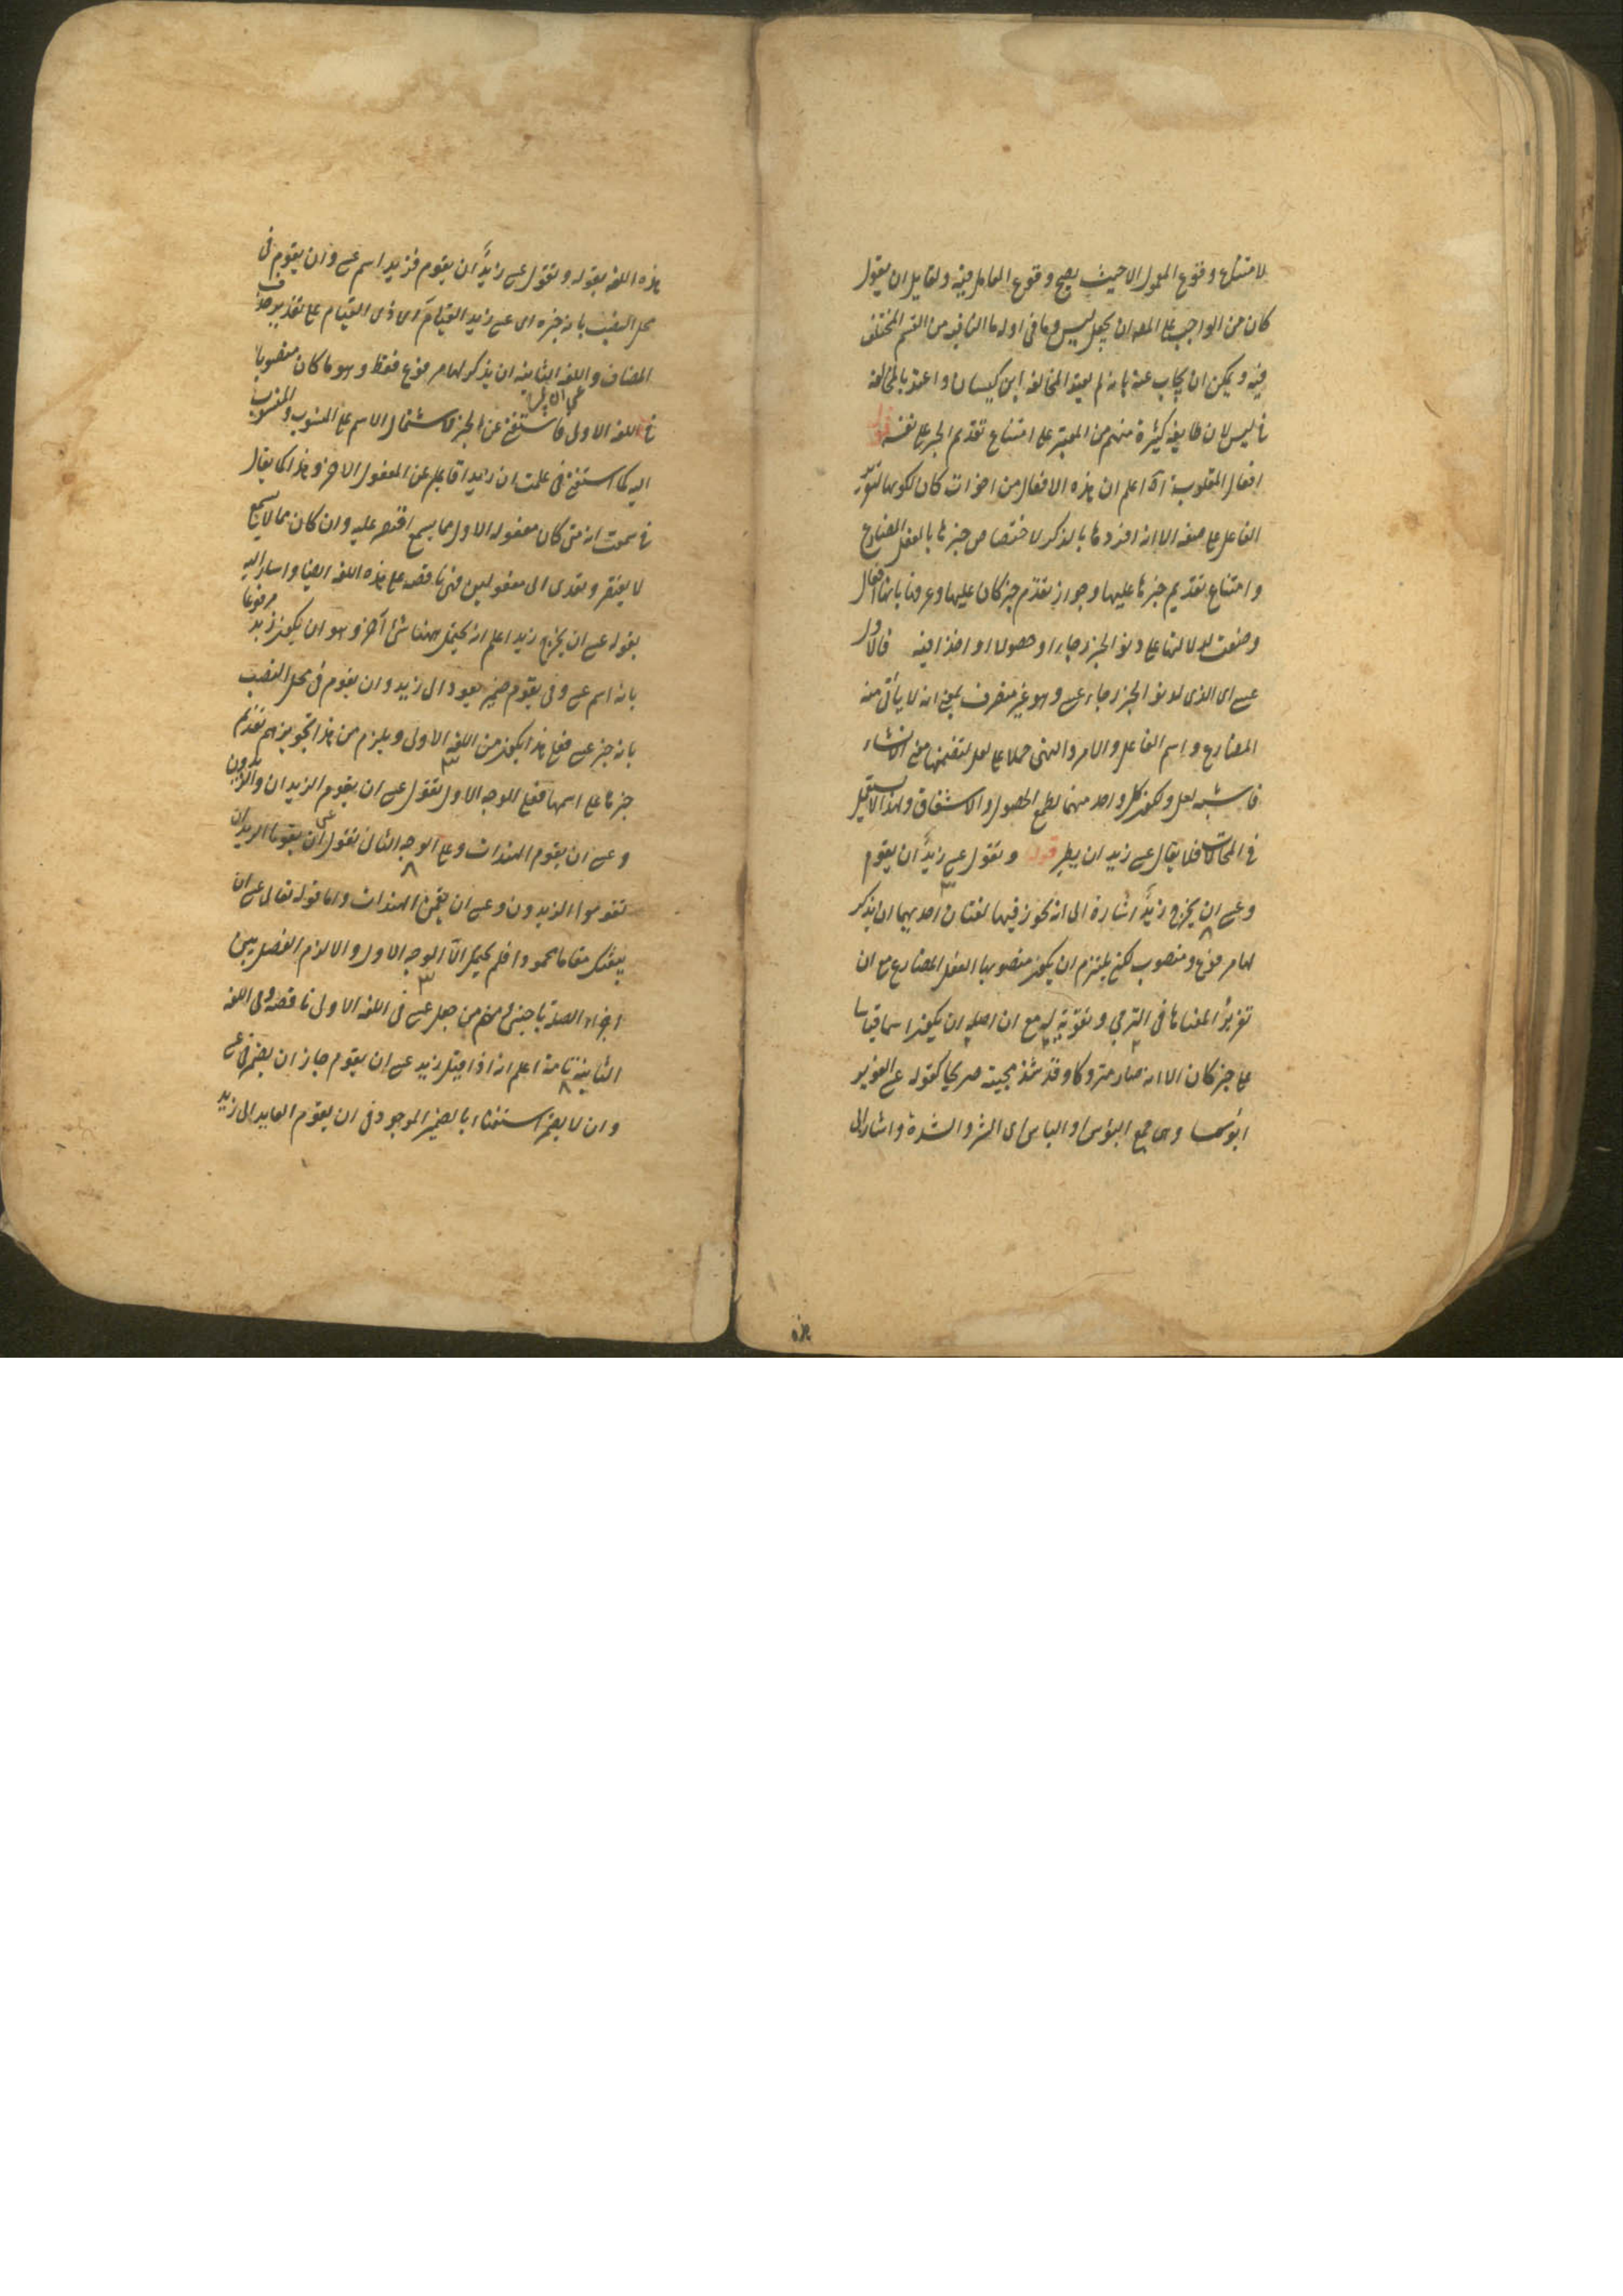 لامتناع وقوع المعمول الا حيث يصح وقوع العامل فيه ولقايل ان يقول
كان من الواجب على المص ان يجعل ليس وما في اوله ما النافيه من القسم المختلف
فيه ويمكن ان يجاب عنه بانه لم يعتبر المخالفه ابن كيسان واعتد بالمخالفه
في ليس لان طايفة كثيرة منهم من المعتبر على امتناع تقديم الخبر على نفسه قوله
افعال المقاربة آه اعلم ان هذه الافعال من اخوات كان لكونها لتقرير
الفاعل على صفه الا انه افردها بالذكر لاختصاص خبرها بالفعل المضارع
وامتناع تقديم خبرها عليها وجواز تقدم خبر كان عليها وعرفها بانها افعال
وضعت للدلالتها على دنو الخبر رجاء او حصولا او اخذا فيه فالاول
عسى اى الذى لدنو الخبر رجاء عسى وهو غير متصرف بمعنى انه لا يأتى منه
المضارع واسم الفاعل والامر والنهى حملا على لعل لتضمنها معنى الانشاء
فاشبه لعل ولكون كل واحد منهما لطمع الحصول والاشفاق ولهذا لا يستعمل
في المحالات فلا يقال عسى زيد ان يطير قوله وتقول عسى زيدٌ ان يقوم
وعسى ان يخرج زيدٌ اشارة الى انه يجوز فيها لغتان احديهما ان يذكر
لها مرفوع ومنصوب لكن يلتزم ان يكون منصوبها الفعل المضارع مع ان
تقريرًا لمعناها في الترجي وتقوية له مع ان اصله ان يكون اسما قياسا
على خبر كان الا انه صار متروكا وقد شذ مجيئه صريحا كقوله عسى الغوير
ابؤسا وهى جمع البؤس او الباس اى الشر والشدة واشار الى
هذه
هذه اللغه بقوله وتقول عسى زيدٌ ان يقوم فزيد اسم عسى وان يقوم في
محل النصب بانه خبره اى عسى زيد القيام اى ذى القيام على تقدير حذف
المضاف واللغه الثانيه ان يذكر لها مرفوع فقط وهو ما كان منصوبا
في اللغه الاولى فاستغنى عن الخبر لاشتمال الاسم على المنسوب والمنسوب
اليه كما استغنى في علمت ان زيدا قايم عن المفعول الاخر وهذا كما يقال
في سمعت انه متى كان مفعوله الاول مما يسمع اقتصر عليه وان كان مما لا يسمع
لا يقتصر وتعدى الى مفعولين فهى ناقصه على هذه اللغه ايضا واشار اليه
بقوله عسى ان يخرج زيد اعلم انه يحتمل ههنا شئ آخر وهو ان يكون زيد مرفوعا
بانه اسم عسى وفى يقوم ضمير يعود الى زيد وان يقوم في محل النصب
بانه خبر عسى فعلى هذا يكون من اللغه الاولى ويلزم من هذا تجويزهم تقديم
خبرها على اسمها فعلى الوجه الاول تقول عسى ان يقوم الزيدان والزيدون
وعسى ان يقوم الهندات وعلى الوجه الثانى تقول عسى ان يقوما الزيدان
يقوموا الزيدون وعسى ان يقمن الهندات واما قوله تعالى عسى ان
يبعثك مقاما محمودا فلم يحتمل الا الوجه الاول والا لزم الفصل بين
اجزاء الصلة باجنبى ومنهم من جعل عسى في اللغه الاولى ناقصه وفى اللغه
الثانية تامة اعلم انه اذا قيل زيد عسى ان يقوم جاز ان يضمر في عسى
وان لا يضمر استغناء بالضمير الموجود فى ان يقوم العايد الى زيد